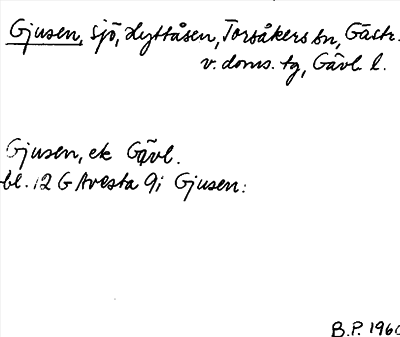 Gjusen, sjö, Hyttåsen, Torsåkers sn, Gästr.
v. doms. tg, Gävl. l.
Gjusen, ek Gävl.
bl. 12 G Avesta 9i Gjusen:
B.P. 1960